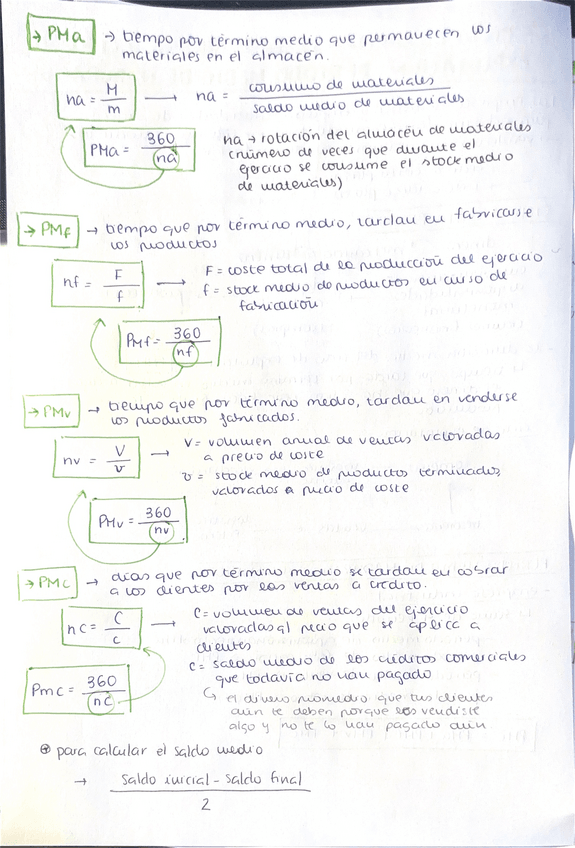 → PMa → tiempo por término medio que permanecen los
materiales en el almacén.
na = M/m → na = consumo de materiales / saldo medio de materiales
PMa = 360/na
na → rotación del almacén de materiales
(número de veces que durante el
ejercicio se consume el stock medio
de materiales)
→ PMf → tiempo que por término medio, tardan en fabricarse
los productos
nf = F/f → F = coste total de la producción del ejercicio
f = stock medio de productos en curso de
fabricación
PMf = 360/nf
→ PMv → tiempo que por término medio, tardan en venderse
los productos fabricados.
nv = V/v → V = volumen anual de ventas valoradas
a precio de coste
v = stock medio de productos terminados,
valorados a precio de coste
PMv = 360/nv
→ PMc → días que por término medio se tardan en cobrar
a los clientes por las ventas a crédito.
nc = C/c → C = volumen de ventas del ejercicio
valoradas al precio que se aplica a
clientes
c = saldo medio de los créditos comerciales
que todavía no han pagado
Pmc = 360/nc
↳ el dinero promedio que tus clientes
aún te deben porque les vendiste
algo y no te lo han pagado aún.
⊛ para calcular el saldo medio
→ saldo inicial - saldo final / 2